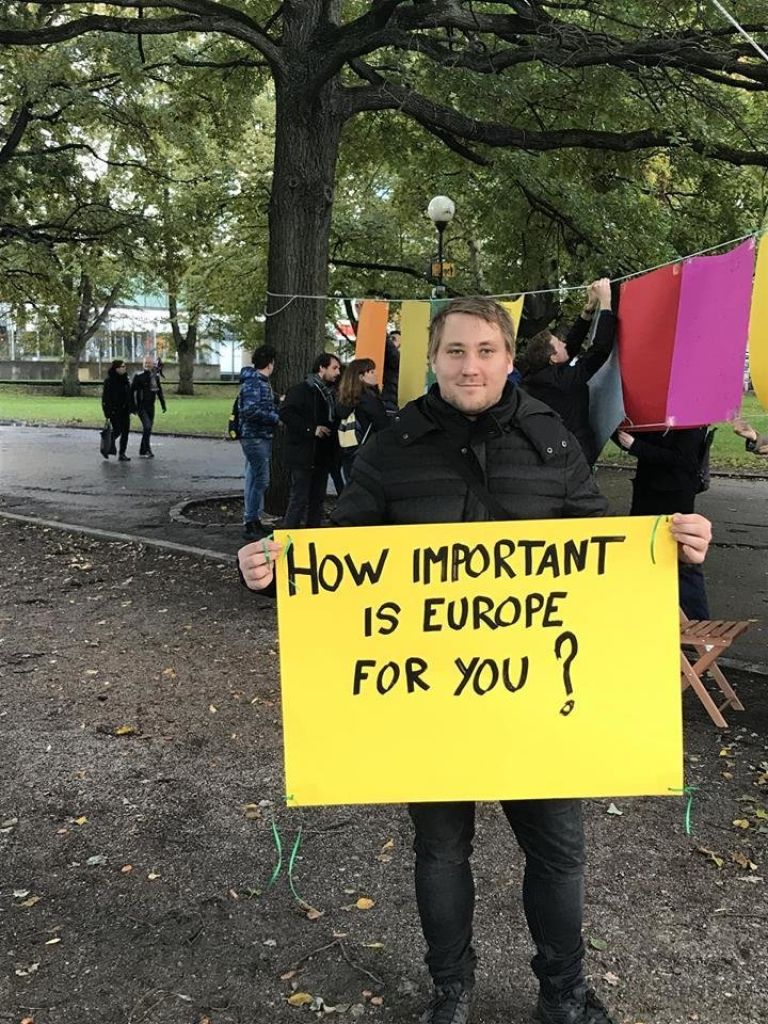 HOW IMPORTANT
IS EUROPE
FOR YOU?